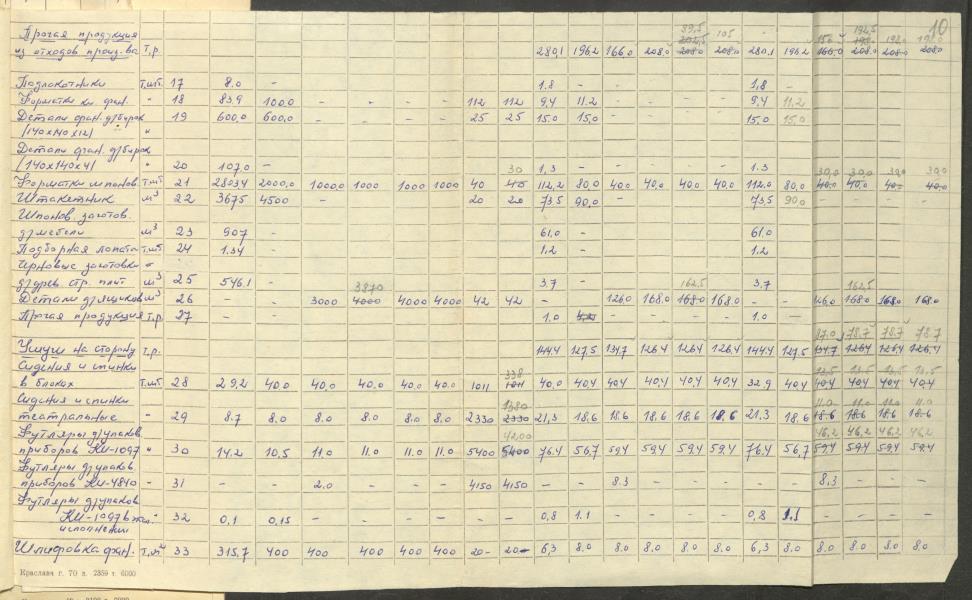 10
39,5 105 150 192,5 198,0
Прочая продукция
из отходов произ-ва т.р. 280,1 196,2 166,0 208,0 208,0 208,0 280,1 196,2 166,0 208,0 208,0 208,0
Подлокотники т.шт. 17 8.0 - 1.8 - 1,8 -
Форматки кл. фан. " 18 83,9 100,0 - - - - 112 112 9,4 11,2 - - - - 9,4 11,2 - - - -
Детали фан. д/бирок " 19 600,0 600,0 - - - - 25 25 15,0 15,0 - - - - 15,0 15,0 - - - -
/140х140х12/ "
Детали фан. д/бирок
/140х140х4/ " 20 107,0 - 30 1,3 - - - - - 1.3 - 30,0 30,0 30,0 30,0
Форматки шпонов. т.шт 21 2803,4 2000,0 1000,0 1000 1000 1000 40 40 112,2 80,0 40,0 40,0 40,0 40,0 112,0 80,0 40,0 40,0 40,0 40,0
Штакетник м³ 22 3675 4500 - 20 20 73,5 90,0 - 73,5 90,0 - - - -
Шпонов. заготов.
д/мебели м³ 23 907 - 61,0 - 61.0
Подборная лопата т.шт 24 1.34 - 1.2 - 1.2
Черновые заготовки
д/древ. стр. плит м³ 25 546.1 3870 3.7 - 162,5 3,7 - 162,5
Детали д/ящиков м³ 26 - - 3000 4000 4000 4000 42 42 - - 126,0 168,0 168,0 168,0 - - 126,0 168,0 168,0 168,0
Прочая продукция т.р. 27 - - 1.0 1.0 -
87.0 78.7 78.7 78.7
Услуги на сторону т.р. 144,4 127,5 134,7 126,4 126,4 126,4 144,4 127,5 134,7 126,4 126,4 126,4
Сидения и спинки 338 13,5 13,5 13,5 13,5
в блоках т.шт 28 29,2 40.0 40.0 40.0 40.0 40.0 1011 1011 40,0 40,4 40,4 40,4 40,4 40,4 32,9 40,4 40,4 40,4 40,4 40,4
Сидения и спинки 1380 11.0 11.0 11.0 11.0
театральные " 29 8.7 8.0 8.0 8.0 8.0 8.0 2330 2330 21,3 18.6 18.6 18.6 18.6 18.6 21,3 18.6 18.6 18.6 18.6 18.6
Футляры д/упаков. 4200 46,2 46,2 46,2 46,2
приборов КИ-1097 " 30 14,2 10,5 11.0 11.0 11.0 11.0 5400 5400 76,4 56,7 59,4 59,4 59,4 59,4 76,4 56,7 59,4 59,4 59,4 59,4
Футляры д/упаков.
приборов КИ-4840 - 31 - - 2.0 - - - 4150 4150 - - 8.3 - - - - - 8.3 - - -
Футляры д/упаков
КИ-1097в
исполнении " 32 0,1 0,15 - - - - - - 0,8 1.1 - - - - 0,8 1.1 - - - -
Шлифовка фан. т.м² 33 315,7 400 400 400 400 400 20- 20- 6,3 8.0 8.0 8.0 8.0 8.0 6,3 8.0 8.0 8.0 8.0 8.0
Краслави г. 70 з. 2359 т. 6000